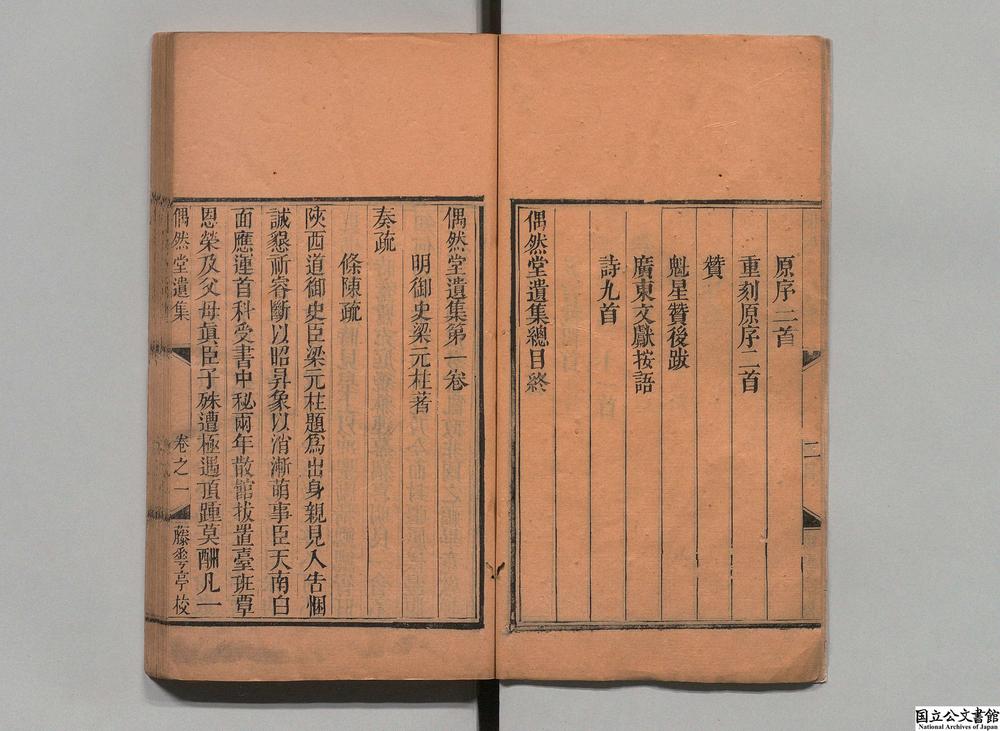 原序二首
重刻原序二首
贊
魁星贊後跋
廣東文獻按語
詩九首
偶然堂遺集總目終
二
偶然堂遺集第一卷
明御史梁元柱著
奏疏
條陳疏
陝西道御史臣梁元柱題爲出身親見入告悃
誠懇祈睿斷以昭昇象以消漸萌事臣天南白
面應運首科受書中秘兩年散館拔置臺班覃
恩榮及父母眞臣子殊遭極遇頂踵莫酬凡一
偶然堂遺集
卷之一
藤雩亭校
国立公文書館
National Archives of Japan